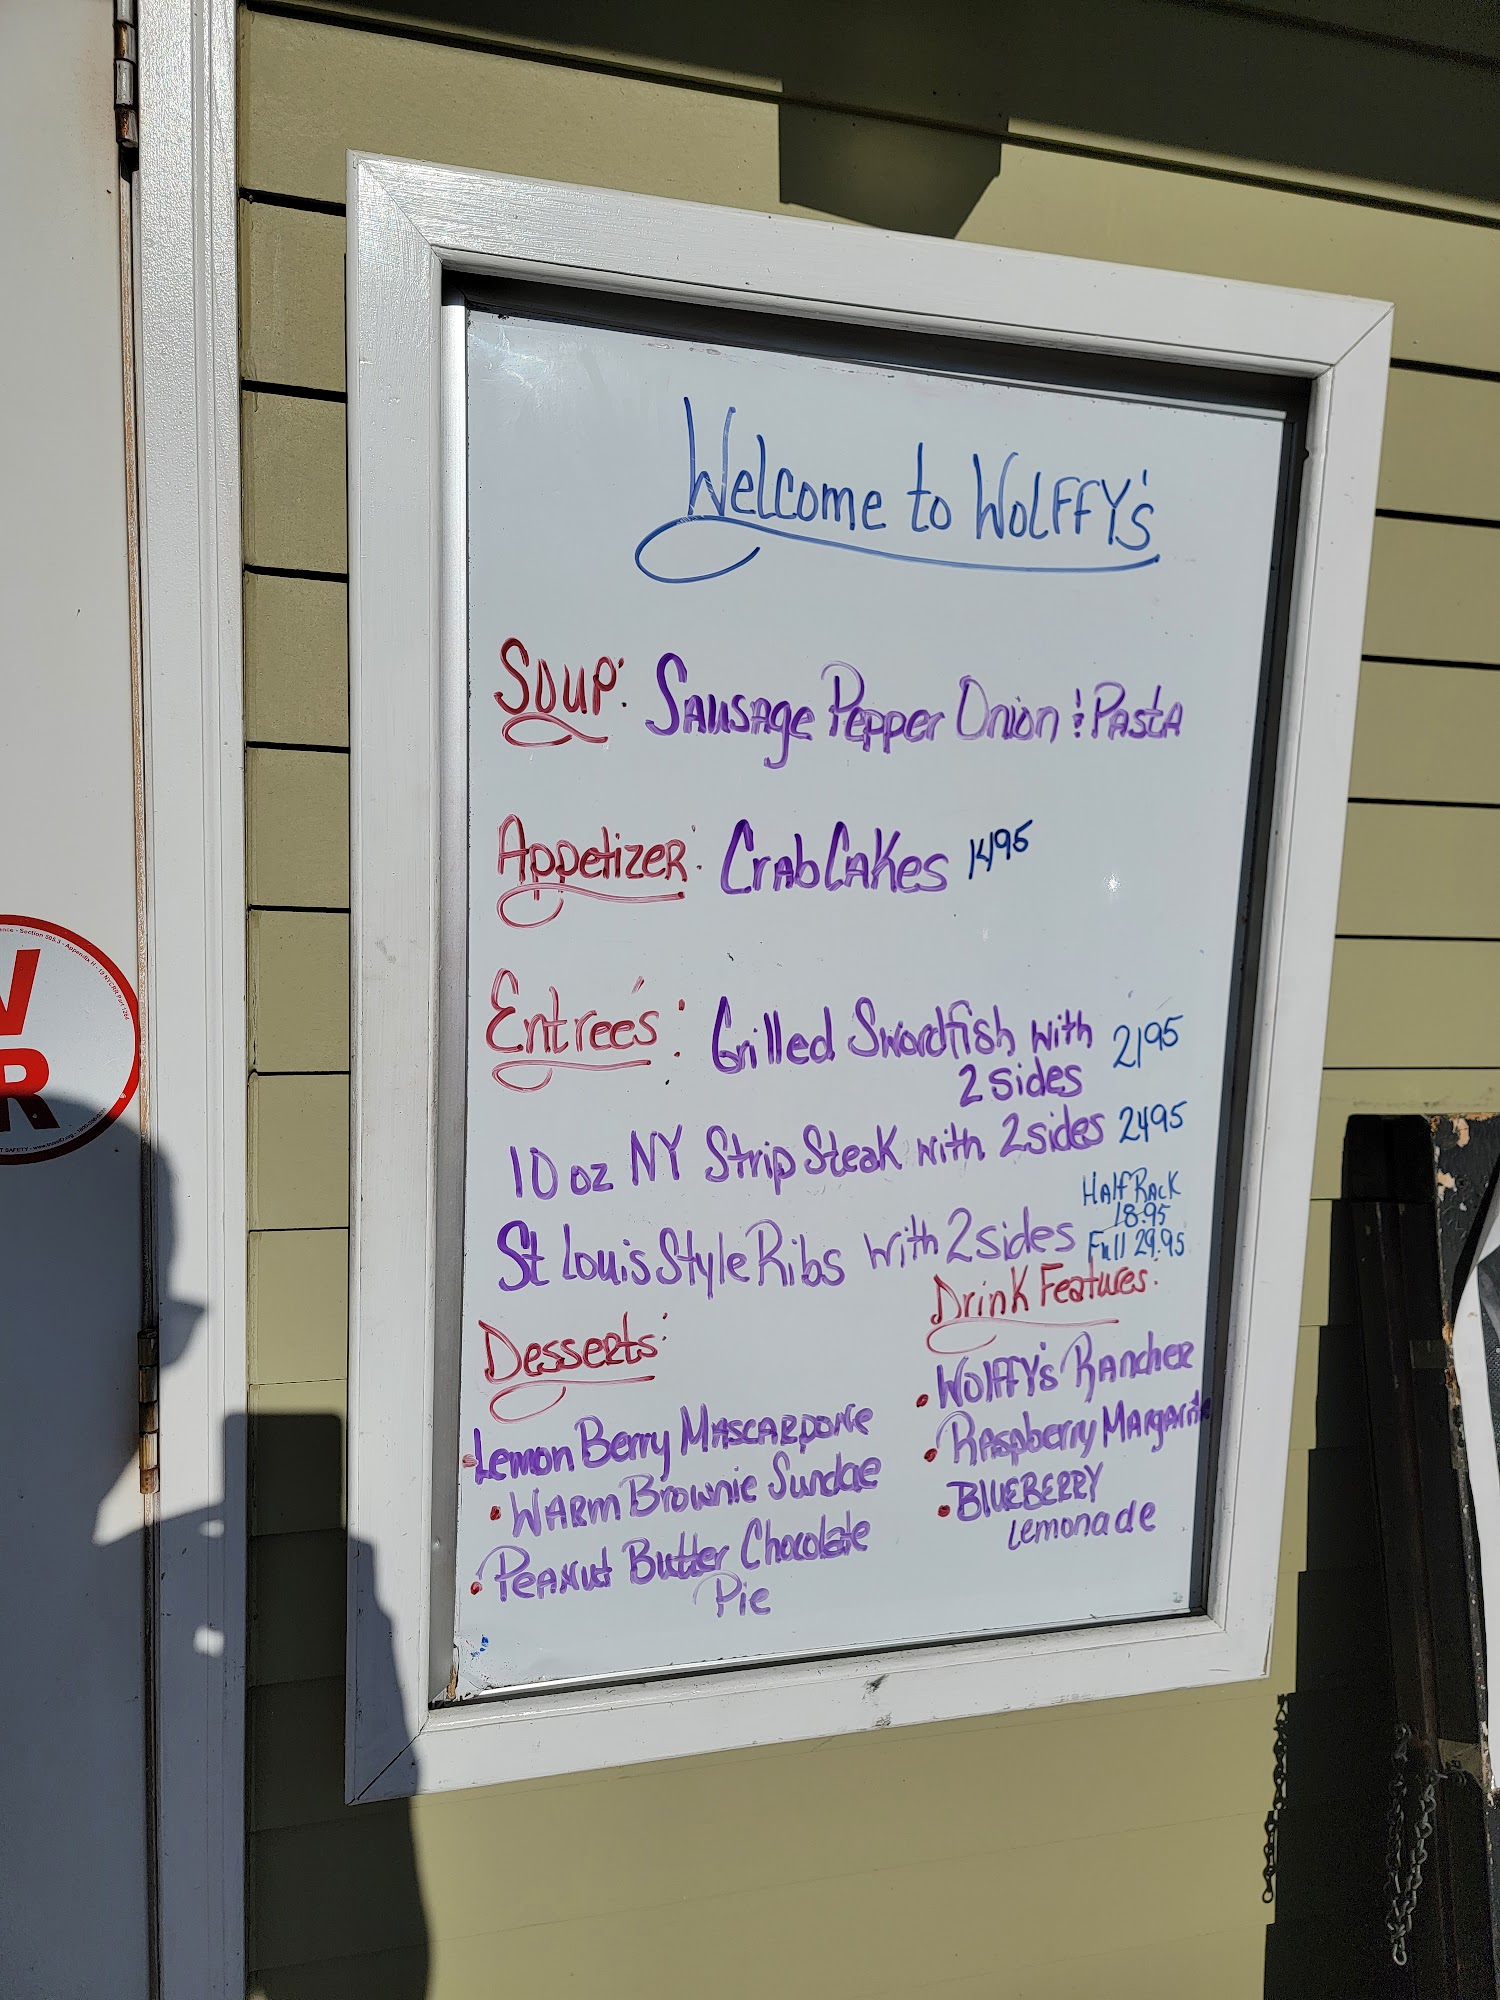 Welcome to Wolffy's
Soup: Sausage Pepper Onion & Pasta
Appetizer: Crab Cakes 1495
Entreés: Grilled Swordfish with 2195
2 sides
10 oz NY Strip Steak with 2 sides 2495
St Louis Style Ribs with 2 sides
Half Rack
18.95
Full 29.95
Desserts:
• Lemon Berry Mascarpone
• Warm Brownie Sundae
• Peanut Butter Chocolate
Pie
Drink Features:
• Wolffy's Rancher
• Raspberry Margarita
• Blueberry
Lemonade
R